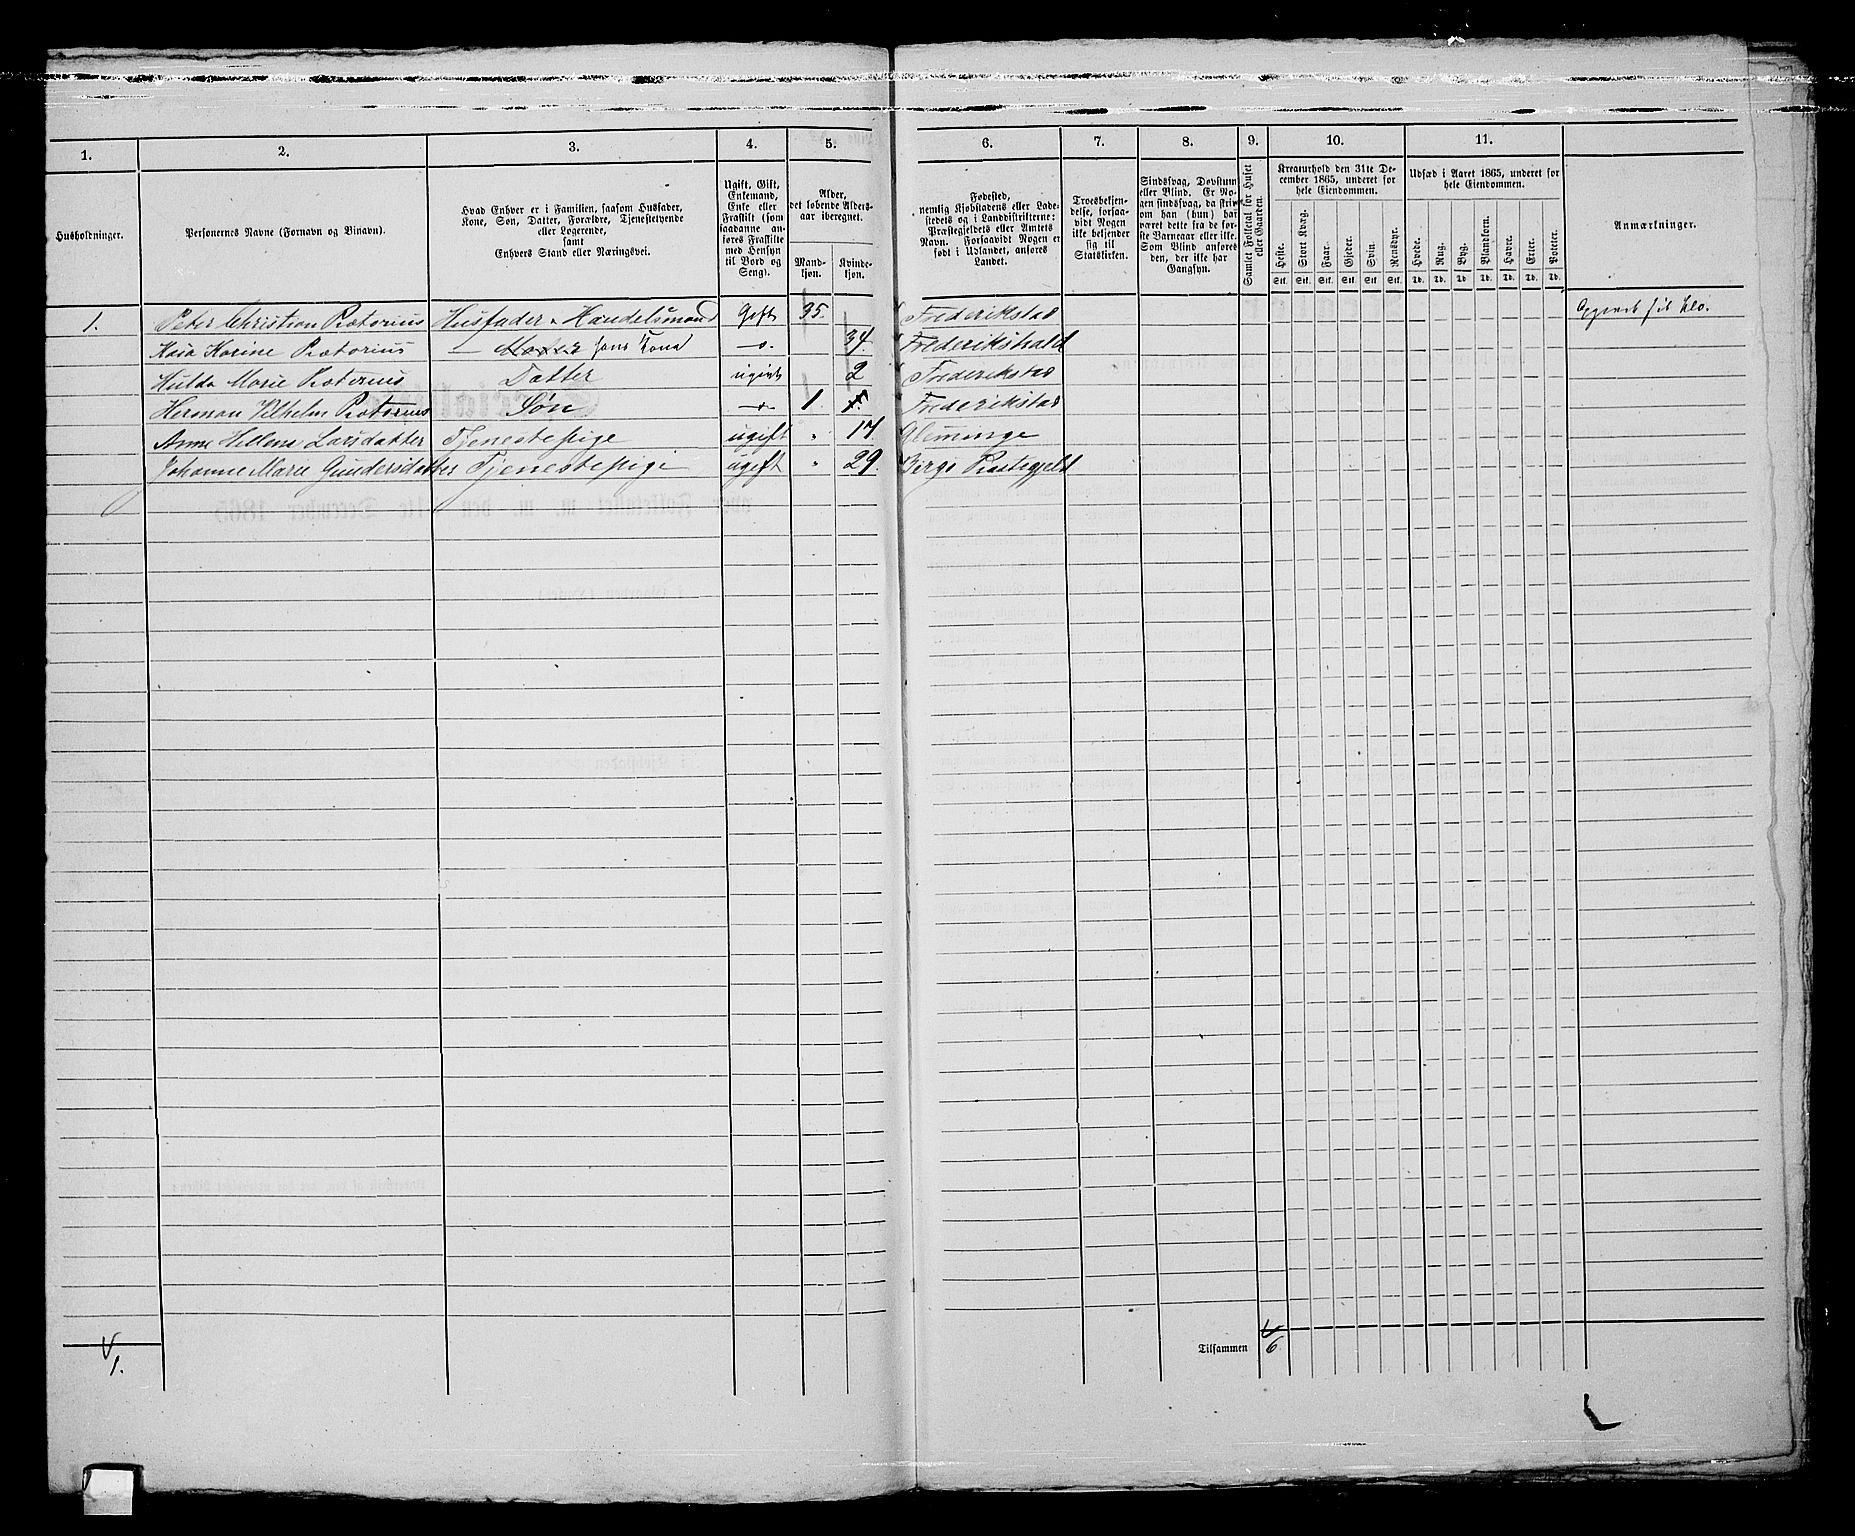 1. 2. 3. 4. 5. 6. 7. 8. 9. 10. 11.
Husholdninger.
Personernes Navne (Fornavn og Binavn).
Hvad Enhver er i Familien, saasom Husfader,
Kone, Søn, Datter, Forældre, Tjenestetyende
eller Logerende,
samt
Enhvers Stand eller Næringsvei.
Ugift, Gift,
Enkemand,
Enke eller
Fraskilt (som
saadanne an-
føres Fraskilte
med Hensyn
til Bord og
Seng).
Alder,
det løbende Alders-
aar iberegnet.
Mand-
kjøn.
Kvinde-
kjøn.
Fødested,
nemlig Kjøbstadens eller Lade-
stedets og i Landdistrikterne:
Præstegjeldets eller Amtets
Navn. Forsaavidt Nogen er
født i Udlandet, anføres
Landet.
Troesbekjen-
delse, forsaa-
vidt Nogen
ikke bekjender
sig til
Statskirken.
Sindssvag, Døvstum
eller Blind. Er No-
gen sindssvag, da skriv
om han (hun) har
været dette fra de før-
ste Barneaar eller ikke.
Som Blind anføres
den, der ikke har
Gangsyn.
Samlet Folketal for Huset
eller Gaarden.
Kreaturhold den 31te De-
cember 1865, underet for
hele Eiendommen.
Heste. Stort Kvæg. Faar. Gjeder. Svin. Rensdyr.
Stk. Stk. Stk. Stk. Stk. Stk.
Udsæd i Aaret 1865, underet for
hele Eiendommen.
Hvede. Rug. Byg. Blandkorn. Havre. Erter. Poteter.
Td. Td. Td. Td. Td. Td. Td.
Anmærkninger.
1. Peter Christian Pretorius Husfader Handelsmand Gift 35. Frederikstad
Karine Pretorius — Moder hans Kona —o— 34. Frederikshald
Hulda Marie Pretorius Datter ugivt 2 Frederikstad
Herman Vilhelm Pretorius Søn —o— 1. 1. Frederikstad
Anne Hellene Larsdatter Tjenestepige ugift " 17. Glemminge
Johanne Marie Gundersdatter Tjenestepige ugift " 29. Præstegjeld
Tilsammen 6
1.